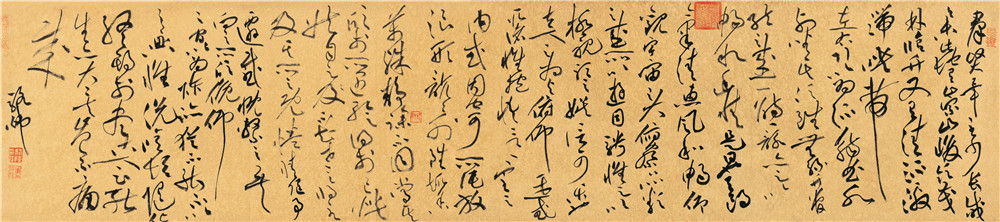 羣賢畢至少長咸
集此地有崇山峻領茂
林脩竹又有清流激
湍暎帶
左右引以為流觴曲水
列坐其次雖無絲竹管
弦之盛一觴一詠亦足以
暢敘幽情是日也天朗
氣清惠風和暢仰
觀宇宙之大俯察品類
之盛所以遊目騁懷足以
極視聽之娛信可樂
也夫人之相與俯仰一世或
取諸懷抱悟言一室之
內或因寄所託放
浪形骸之外雖趣舍
萬殊靜躁不同當其
欣於所遇蹔得於己快
然自足不知老之將至
及其所之既惓情隨事
遷感慨係之矣向
之所欣俛仰
之間以為陳迹猶不能不以
之興懷況脩短隨化
終期於盡古人云死
生亦大矣豈不痛
哉